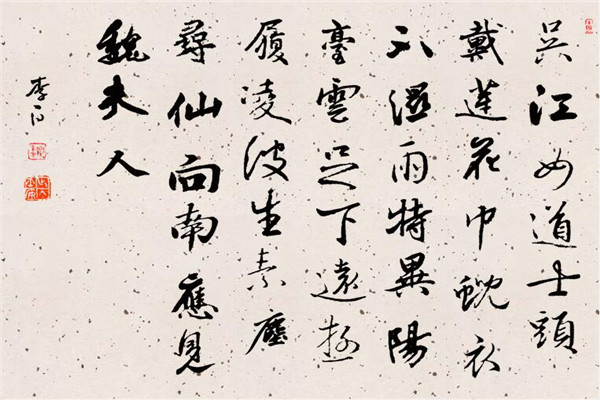 吳江女道士頭
戴蓮花巾蜺衣
不濕雨特異陽
臺雲足下遠遊
履凌波生素塵
尋仙向南應見
魏夫人
李白